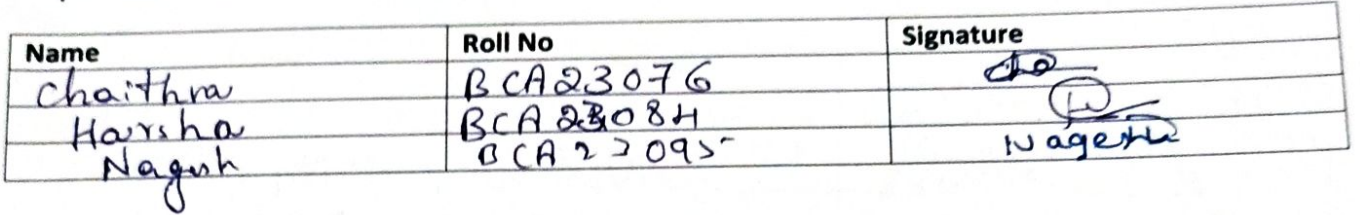 Name Roll No Signature
Chaithra BCA23076
Harsha BCA23084
Nagesh BCA23095 Nagesh